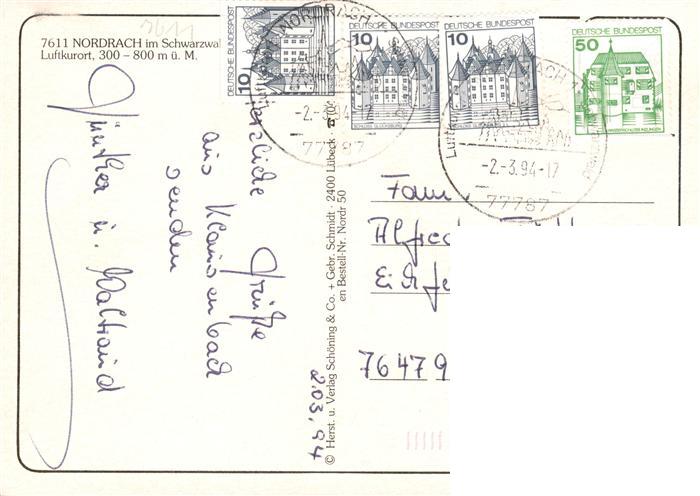 7611 NORDRACH im Schwarzwal
Luftkurort, 300 – 800 m ü. M.
Herzliche Grüße
aus Klausenbach
senden
Günther u. Waltraud
2.03.94
© Herst. u. Verlag Schöning & Co. + Gebr. Schmidt · 2400 Lübeck
en Bestell-Nr. Nordr 50
DEUTSCHE BUNDESPOST
10
DEUTSCHE BUNDESPOST
10
SCHLOSS GLÜCKSBURG
DEUTSCHE BUNDESPOST
10
SCHLOSS GLÜCKSBURG
DEUTSCHE BUNDESPOST
50
WASSERSCHLOSS INZLINGEN
NORDRACH
77787
-2.-3.94-17
77787
Fam
Alfred
76479